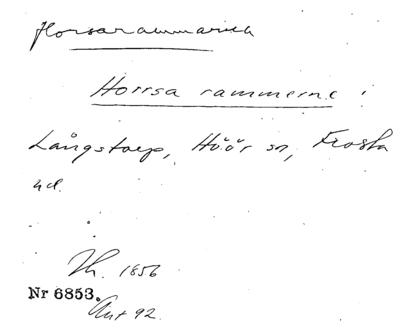 Horsarammarna
Horrsa rammerne
Långstorp, Höör sn, Frosta
hd.
Th. 1856
Nr 6853.
Ant 92.